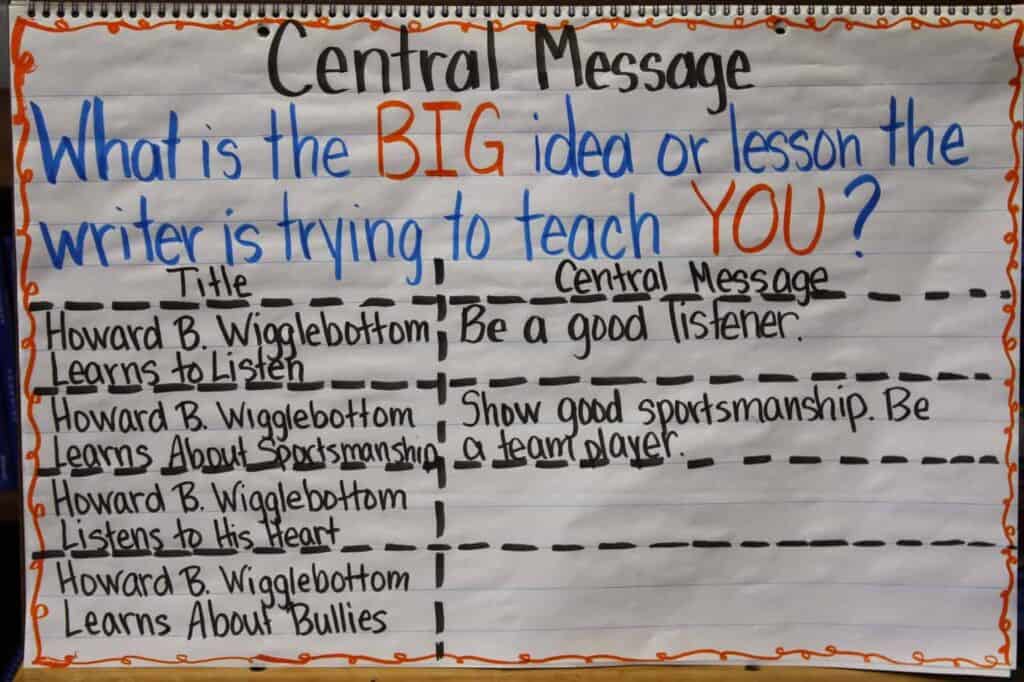 Central Message
What is the BIG idea or lesson the
writer is trying to teach YOU?
Title
Central Message
Howard B. Wigglebottom
Learns to Listen
Be a good listener.
Howard B. Wigglebottom
Learns About Sportsmanship
Show good sportsmanship. Be
a team player.
Howard B. Wigglebottom
Listens to His Heart
Howard B. Wigglebottom
Learns About Bullies